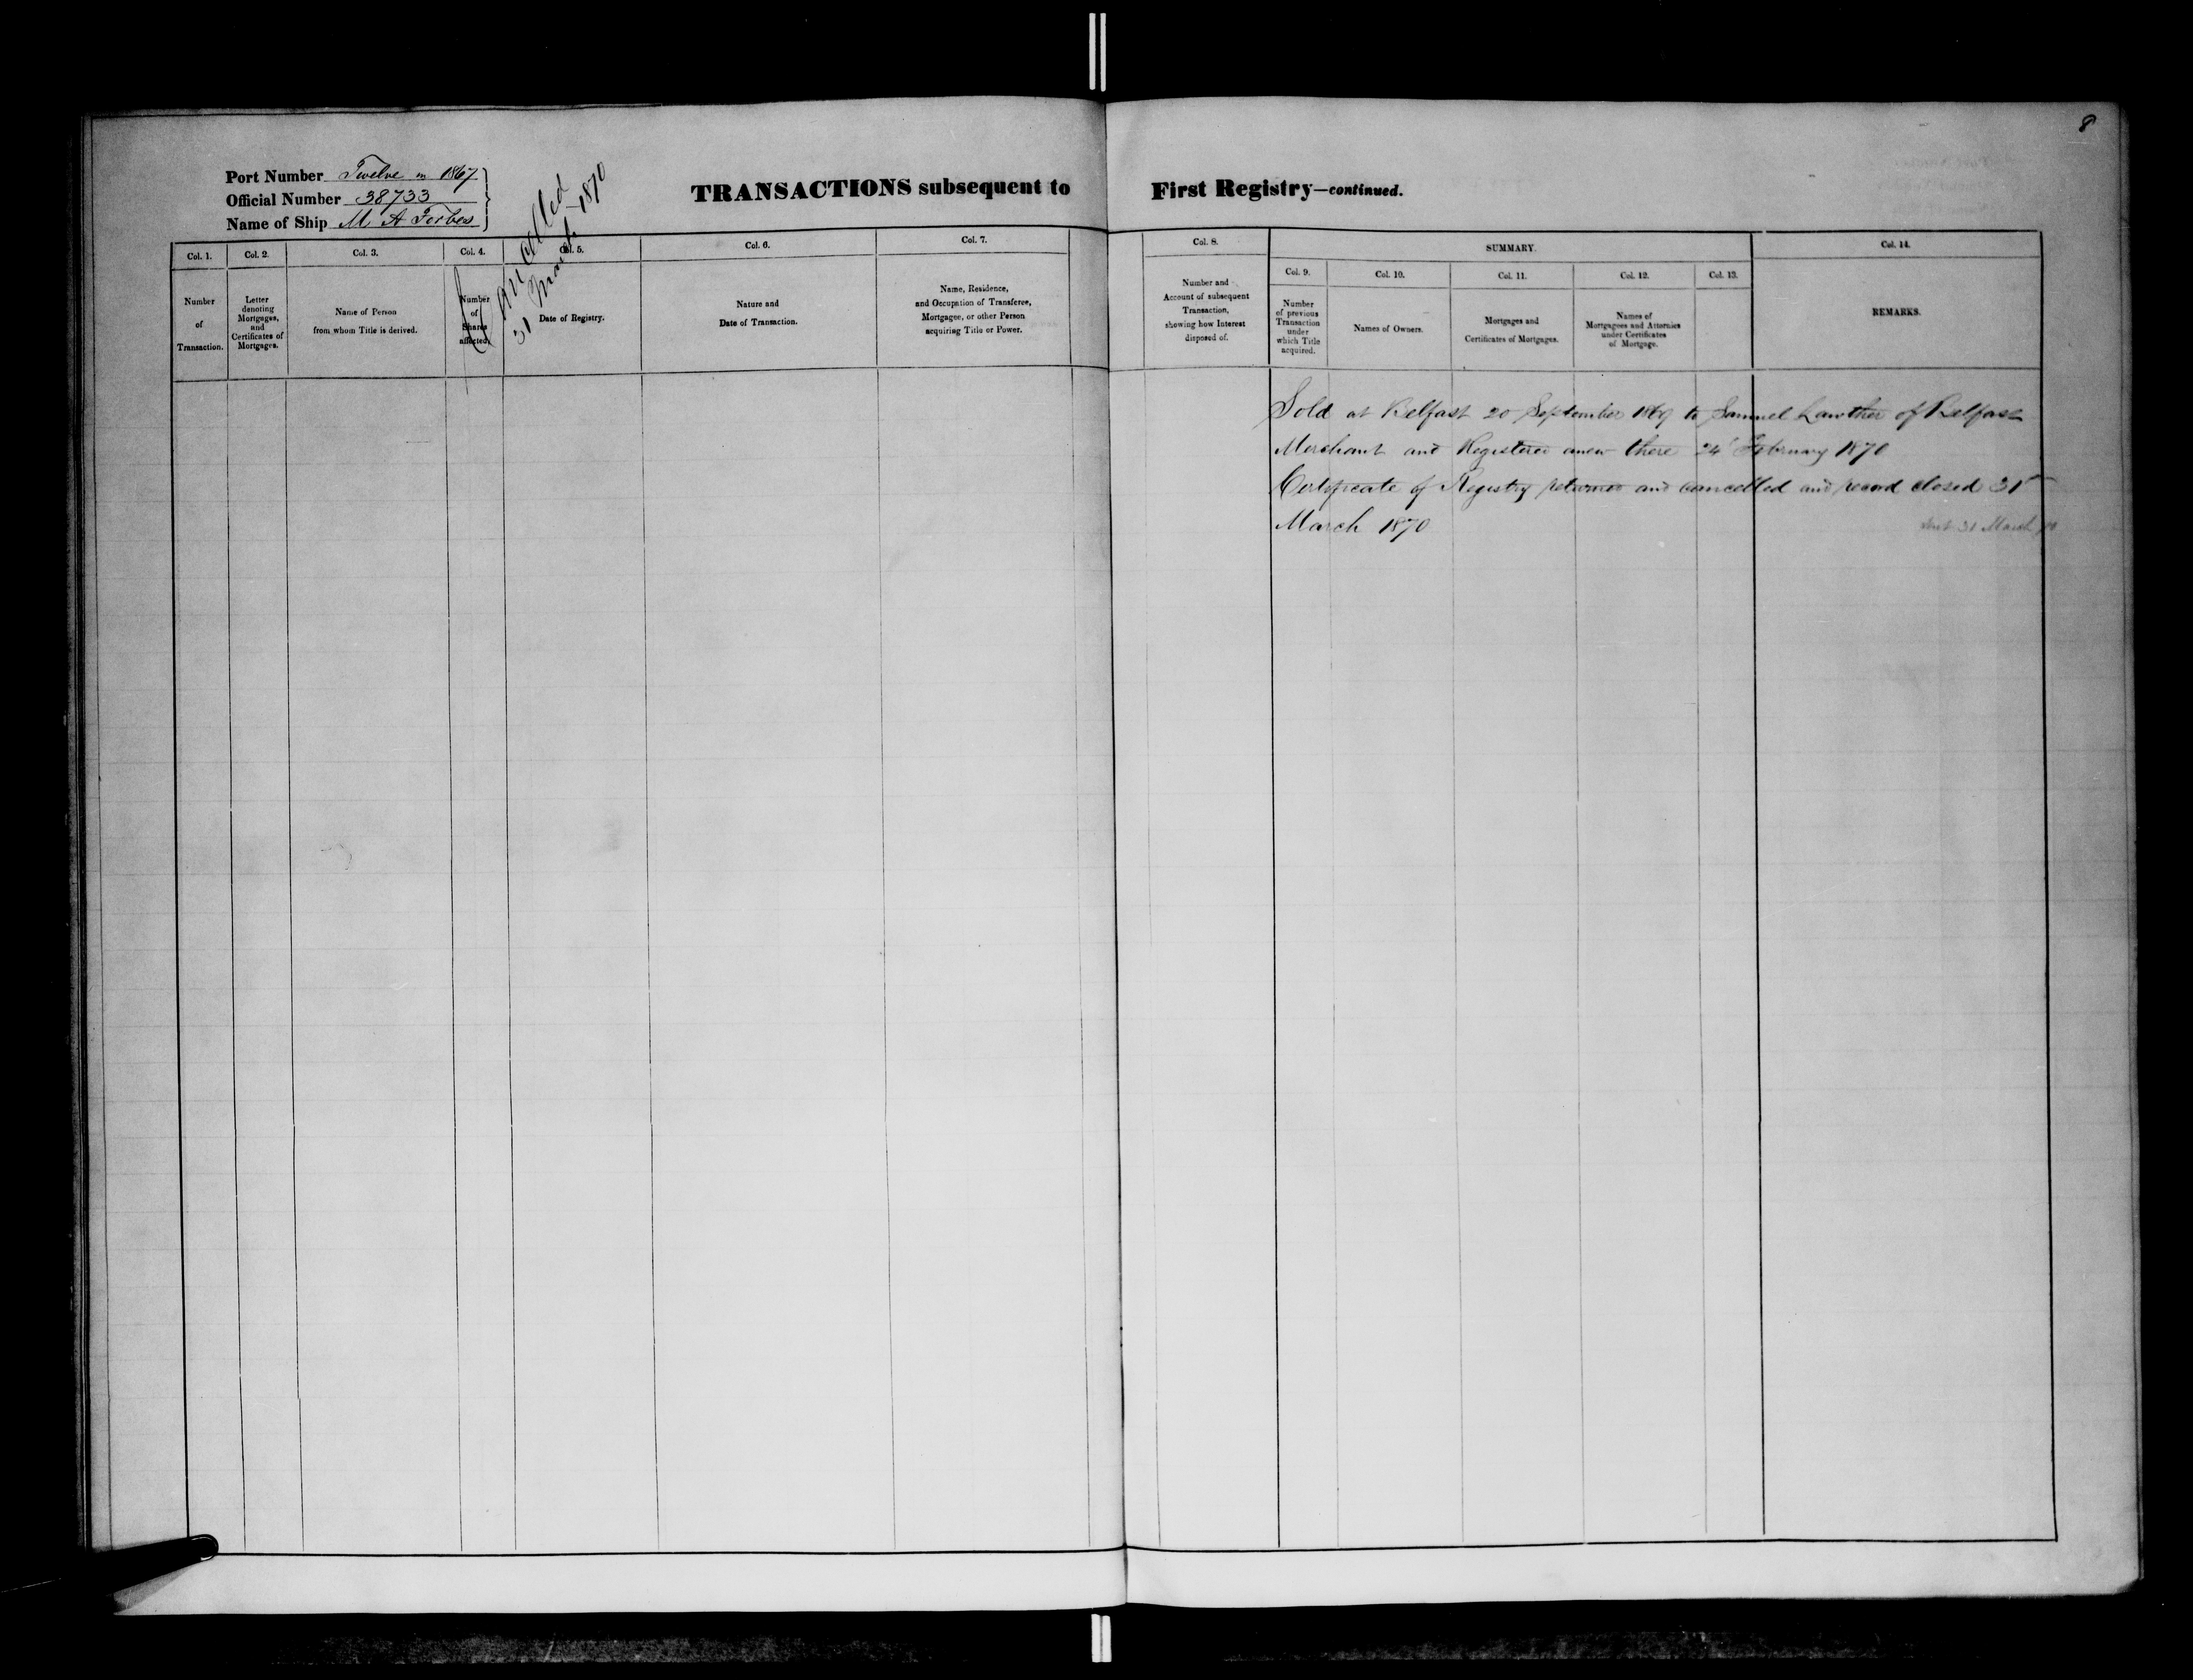 8
Port Number Twelve in 1867
Official Number 38733
Name of Ship M A Forbes
Cancelled
31 March 1870
TRANSACTIONS subsequent to First Registry—continued.
Col. 1.
Number
of
Transaction.
Col. 2.
Letter
denoting
Mortgages,
and
Certificates of
Mortgages.
Col. 3.
Name of Person
from whom Title is derived.
Col. 4.
Number
of
Shares
affected.
Col. 5.
Date of Registry.
Col. 6.
Nature and
Date of Transaction.
Col. 7.
Name, Residence,
and Occupation of Transferee,
Mortgagee, or other Person
acquiring Title or Power.
Col. 8.
Number and
Account of subsequent
Transaction,
showing how Interest
disposed of.
SUMMARY.
Col. 9.
Number
of previous
Transaction
under
which Title
acquired.
Col. 10.
Names of Owners.
Col. 11.
Mortgages and
Certificates of Mortgages.
Col. 12.
Names of
Mortgagees and Attornies
under Certificates
of Mortgage.
Col. 13.
Col. 14.
REMARKS.
Sold at Belfast 20 September 1869 to Samuel Lawther of Belfast
Merchant and Registered anew there 24 February 1870
Certificate of Registry returned and cancelled and record closed 31st
March 1870
31 March 70